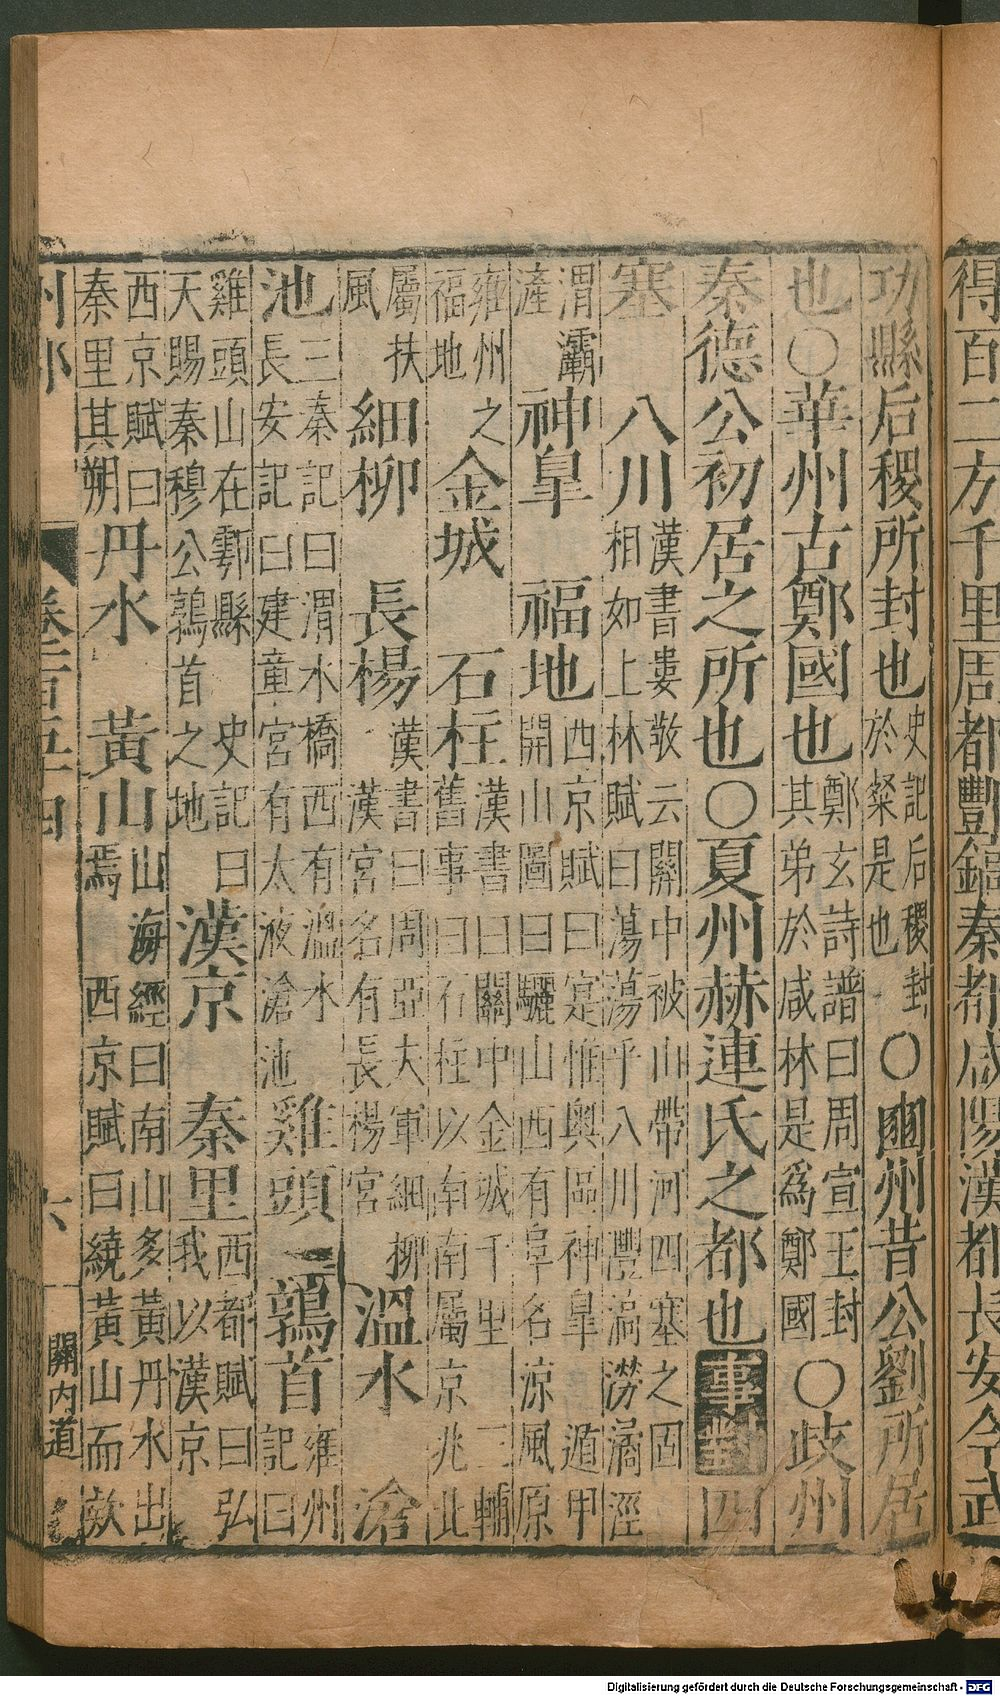 得百二方千里周都豐鎬秦都咸陽漢都長安今武
功縣后稷所封也史記后稷封於漦是也○豳州昔公劉所居
也○華州古鄭國也鄭玄詩譜曰周宣王封其弟於咸林是爲鄭國○歧州
秦德公初居之所也○夏州赫連氏之都也事對四
塞 八川漢書婁敬云關中被山帶河四塞之固相如上林賦曰蕩蕩乎八川灃滈澇潏涇
渭灞滻神皐 福地西京賦曰寔惟奥區神皐 遁甲開山圖曰驪山西有阜名涼風原
雍州之福地金城 石柱漢書曰關中金城千里 三輔舊事曰石柱以南南屬京兆北
屬扶風細柳 長楊漢書曰周亞夫軍細柳漢宮名有長楊宮溫水 滄
池三秦記曰渭水橋西有溫水長安記曰建童宮有太液滄池雞頭 鶉首雍州記曰
雞頭山在鄠縣 史記曰天賜秦穆公鶉首之地漢京 秦里西都賦曰弘我以漢京
西京賦曰秦里其朔丹水 黃山山海經曰南山多黃丹水出焉 西京賦曰繞黃山而欵
州郡
六
關内道
Digitalisierung gefördert durch die Deutsche Forschungsgemeinschaft - DFG